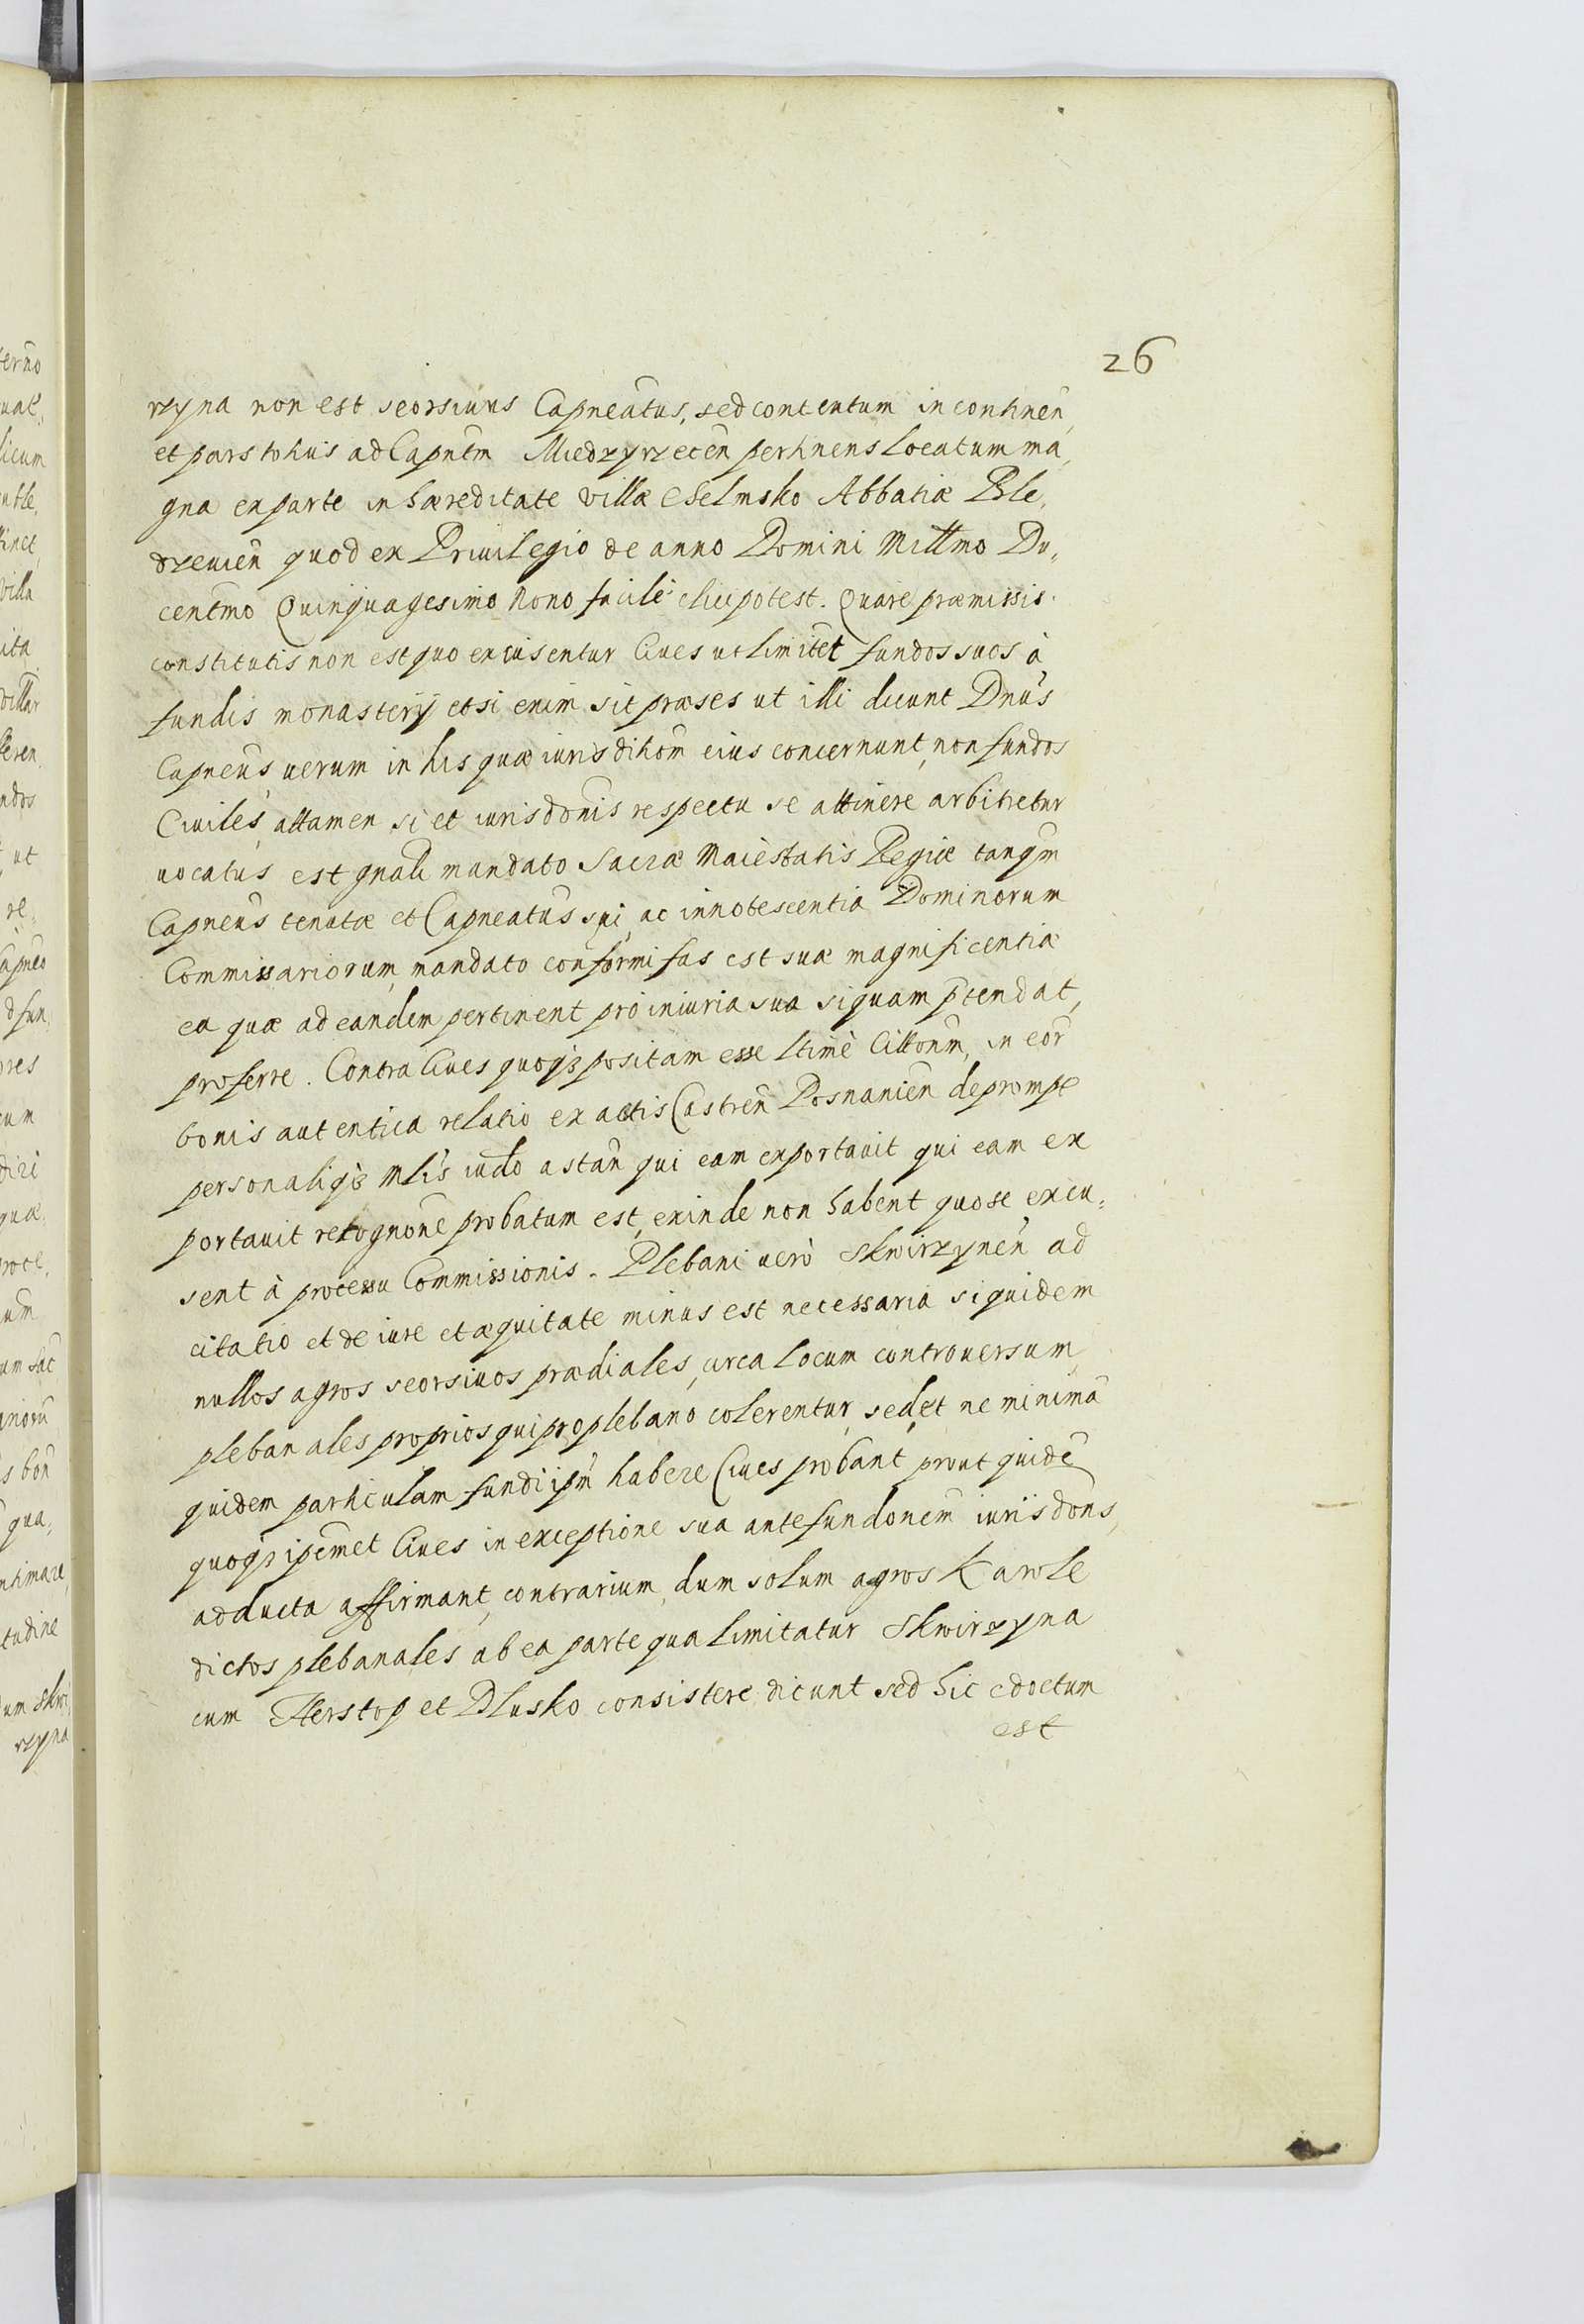 26
rzyna non est seorsiuus Capneatus, sed contentum in continen̄,
et pars totius ad Capnt̄m Miedzyrzecen̄ pertinens locatum ma,
gna ex parte in hæreditate villæ Chełmsko Abbatiæ Ble,
dzeuien̄ quod ex Priuilegio de anno Domini Millmo Du,
centmo Quinquagesimo Nono facilè elici potest. Quare præmissis
constitutis non est quo excusentur Ciues ut limitet fundos suos à
fundis monasterÿ etsi enim sit præses ut illi dicunt Dnūs
Capneūs uerum in his quæ iurisditiom̄ eius concernunt, non fundos
Ciuiles, attamen si et iurisdōnis respectu se attinere arbitretur
uocatus est gnāli mandato Sacræ Maiestatis Regiæ tanqm̄
Capneūs tenutæ et Capneatūs sui, ac innotescentia Dominorum
Commissariorum, mandato conformi fas est suæ magnificentiæ
ea quæ ad eandem pertinent pro iniuria sua si quam p̄tendat,
proferre. Contra Ciues quoq̨ positam esse ltimè Cittonm̄, in eor̄
bonis autentica relatio ex actis Castren̄ Posnanien̄ deprompt
personaliq̨ Mlīs iudo astan̄ qui eam exportauit qui eam ex
portauit recognōne probatum est, exinde non habent quo se excu,
sent à processu Commissionis. Plebani uerò Skwirzynen̄ ad
citatio et de iure et æquitate minus est necessaria siquidem
nullos agros seorsiuos prædiales, circa locum controuersum,
plebanales proprios qui pro plebano colerentur, sed et ne minimā
quidem particulam fundi ipm̄ habere Ciues probant, prout quidē
quoq̨ ipēmet Ciues in exceptione sua ante fundonem̄ iurisdōns,
adducta affirmant, contrarium, dum solum agros Karole
dictos plebanales ab ea parte qua limitatur Skwirzyna
cum Herstop et Dlusko consistere dicunt sed hic edoctum
est